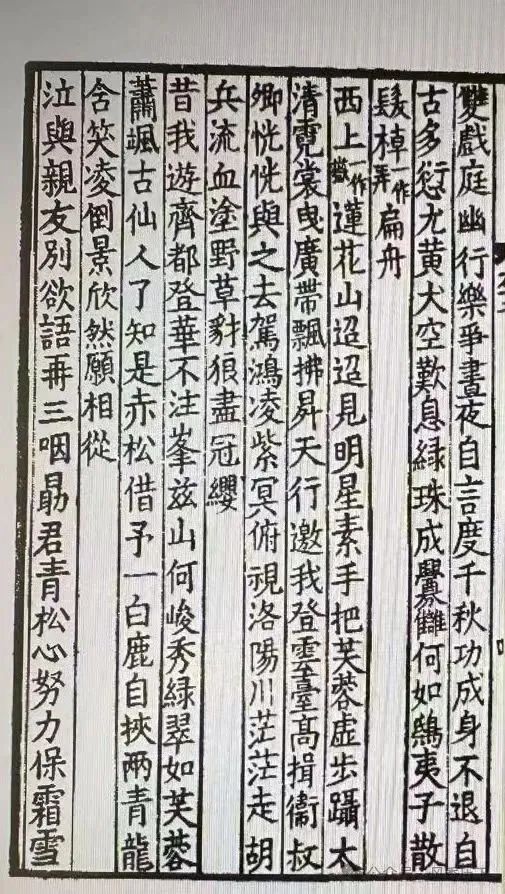 雙戲庭幽行樂爭晝夜自言度千秋功成身不退自
古多愆尤黃犬空歎息緑珠成釁讎何如鴟夷子散
髮棹一作弄扁舟
西上一作嶽蓮花山迢迢見明星素手把芙蓉虛步躡太
清霓裳曳廣帶飄拂昇天行邀我登雲臺高揖衞叔
卿恍恍與之去駕鴻凌紫冥俯視洛陽川茫茫走胡
兵流血塗野草豺狼盡冠纓
昔我遊齊都登華不注峯兹山何峻秀緑翠如芙蓉
蕭颯古仙人了知是赤松借予一白鹿自挾兩青龍
含笑凌倒景欣然願相從
泣與親友別欲語再三咽勗君青松心努力保霜雪